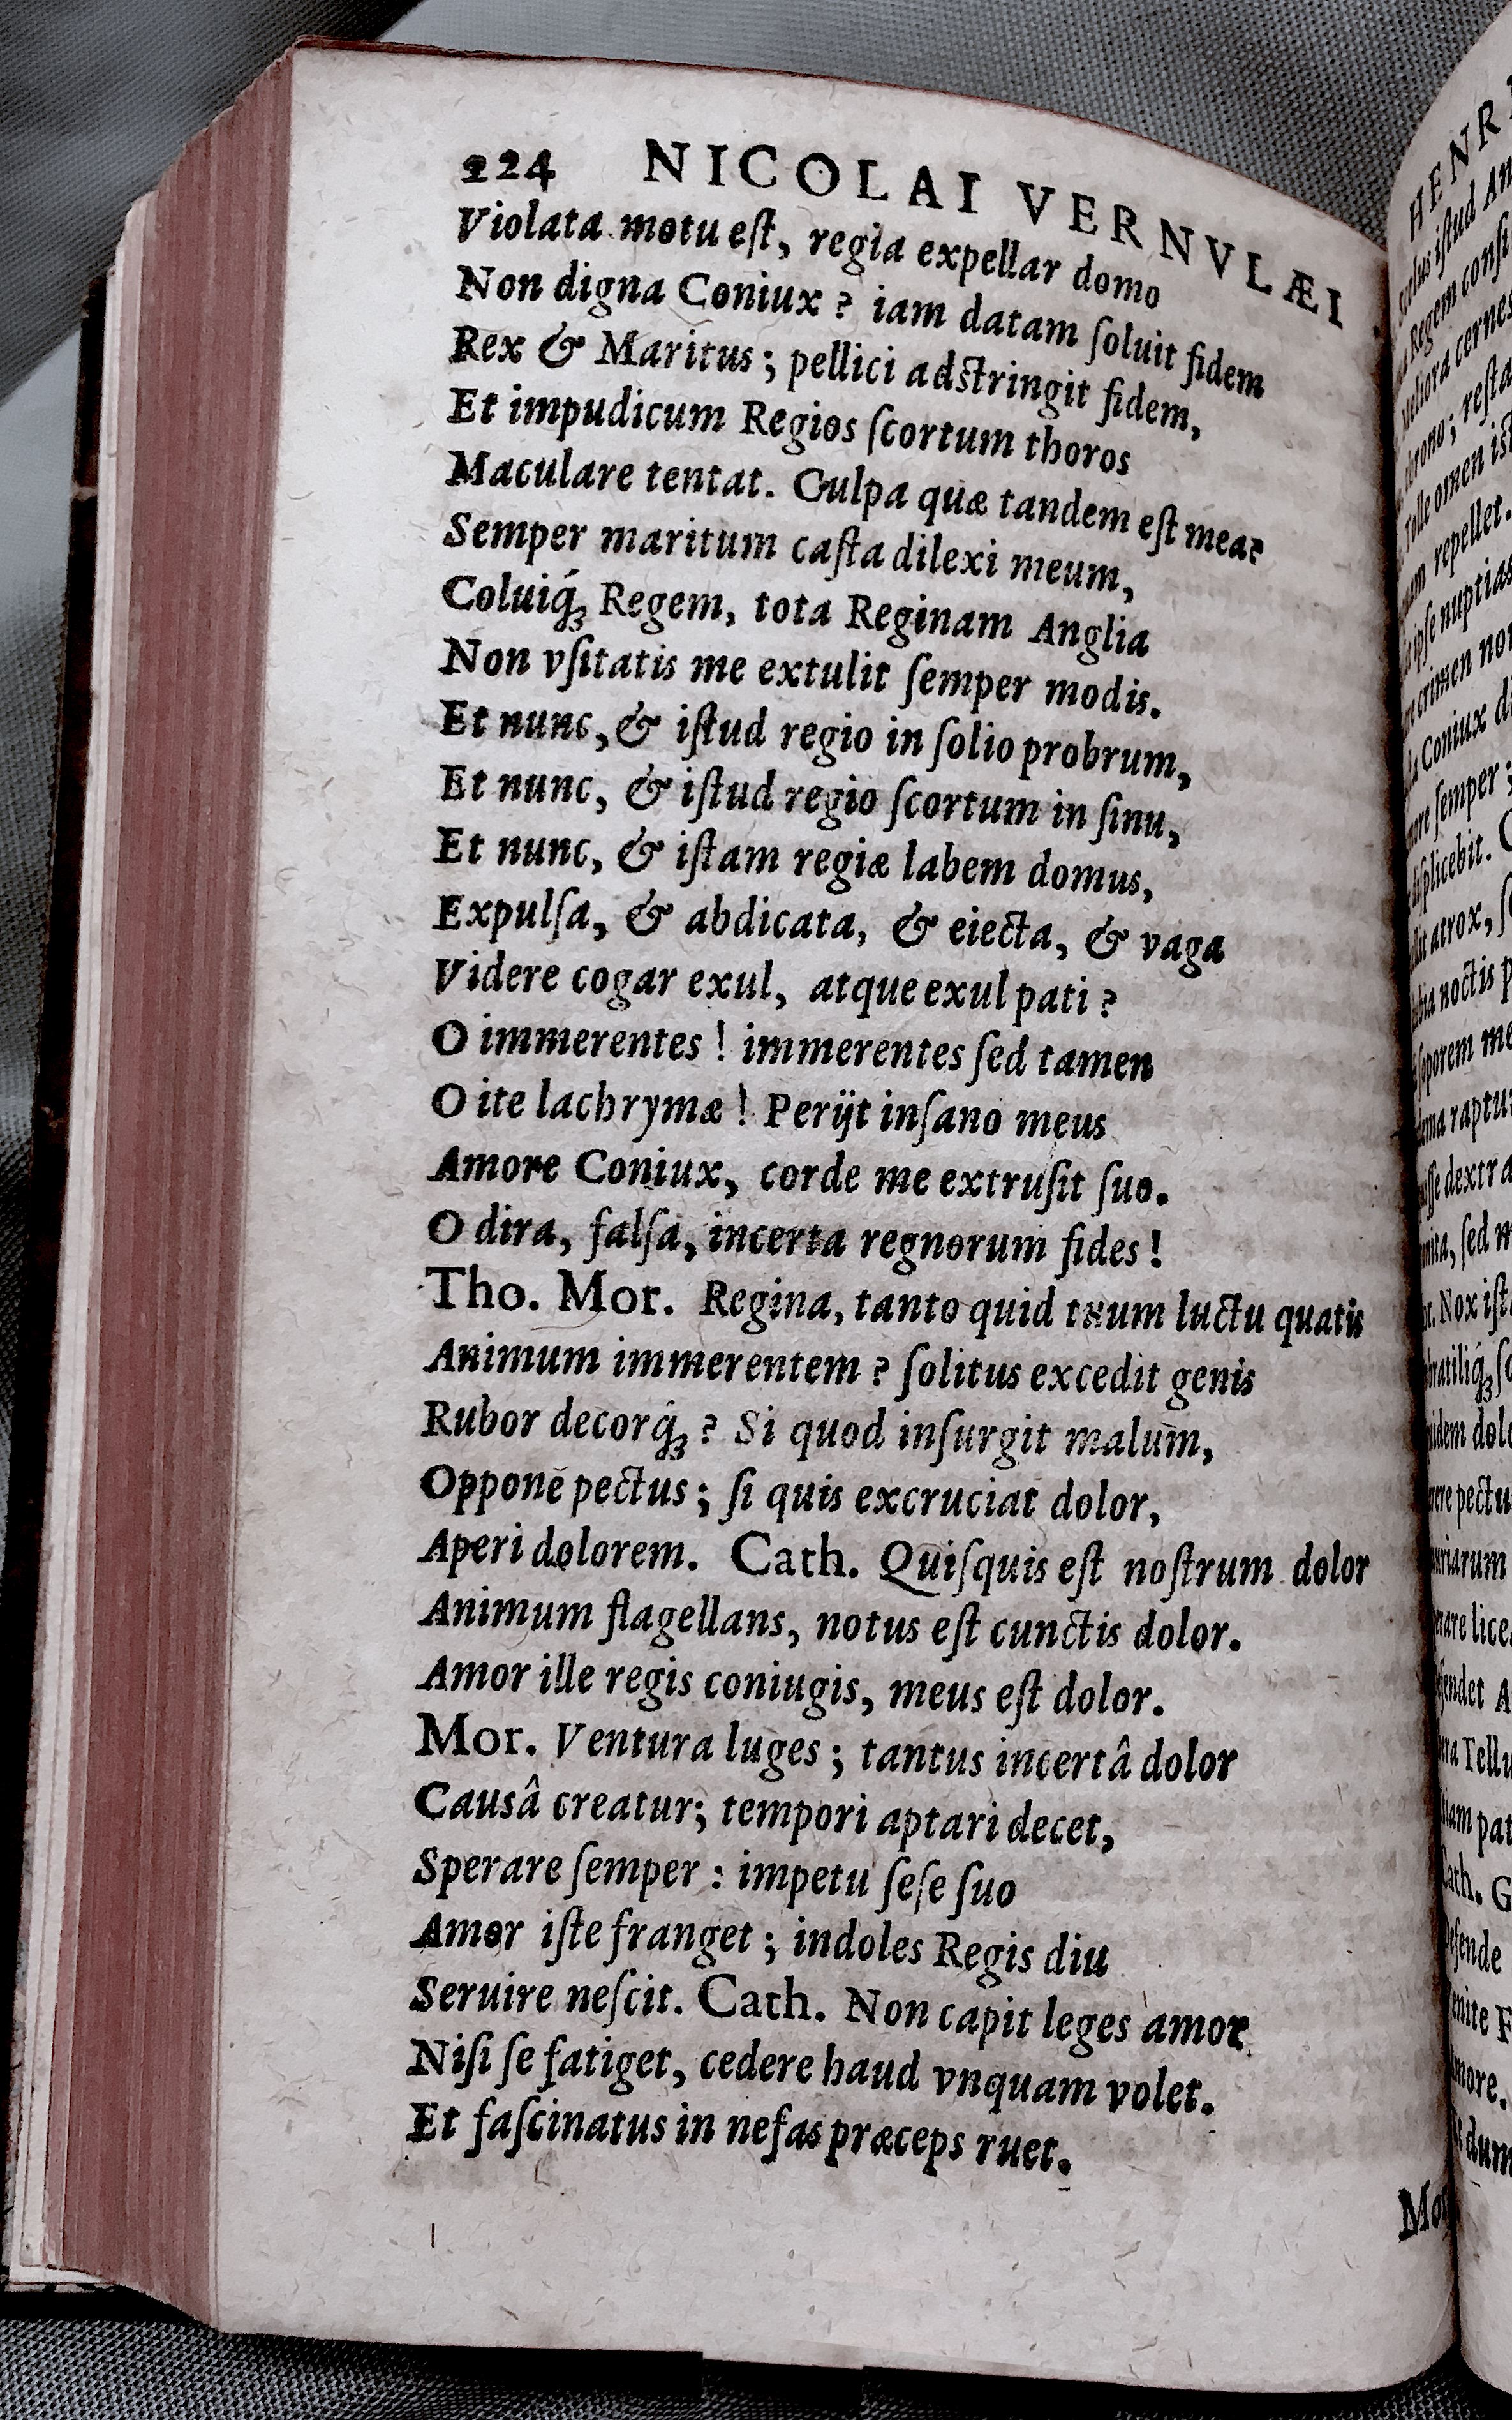 224 NICOLAI VERNVLÆI
Violata motu eſt, regia expellar domo
Non digna Coniux ? iam datam ſoluit fidem
Rex & Maritus ; pellici adſtringit fidem,
Et impudicum Regios ſcortum thoros
Maculare tentat. Culpa quæ tandem eſt mea?
Semper maritum caſta dilexi meum,
Coluiq́ꝫ Regem, tota Reginam Anglia
Non vſitatis me extulit ſemper modis.
Et nunc, & iſtud regio in ſolio probrum,
Et nunc, & iſtud regio ſcortum in ſinu,
Et nunc, & iſtam regiæ labem domus,
Expulſa, & abdicata, & eiecta, & vaga
Videre cogar exul, atque exul pati ?
O immerentes ! immerentes ſed tamen
O ite lachrymæ ! Perijt inſano meus
Amore Coniux, corde me extruſit ſuo.
O dira, falſa, incerta regnorum fides !
Tho. Mor. Regina, tanto quid tuum luctu quatis
Animum immerentem ? ſolitus excedit genis
Rubor decorq́ꝫ ? Si quod inſurgit malum,
Oppone pectus ; ſi quis excruciat dolor,
Aperi dolorem. Cath. Quiſquis eſt noſtrum dolor
Animum flagellans, notus eſt cunctis dolor.
Amor ille regis coniugis, meus eſt dolor.
Mor. Ventura luges ; tantus incertâ dolor
Causâ creatur; tempori aptari decet,
Sperare ſemper : impetu ſeſe ſuo
Amor iſte franget ; indoles Regis diu
Seruire neſcit. Cath. Non capit leges amor
Niſi ſe fatiget, cedere haud vnquam volet.
Et faſcinatus in nefas præceps ruet.
HENR
iſtud An
Regem conſi
Meliora cernes
; reſta
Tolle omen iſ
repellet.
ipſe nuptias
crimen non
Coniux d
ſemper ;
diſplicebit. C
atrox, ſ
noctis p
me
raptu
dextra
, ſed n
Nox iſt
dolo
pectu
lice
A
Tellu
pat
Cath. G
F
dum
Mor